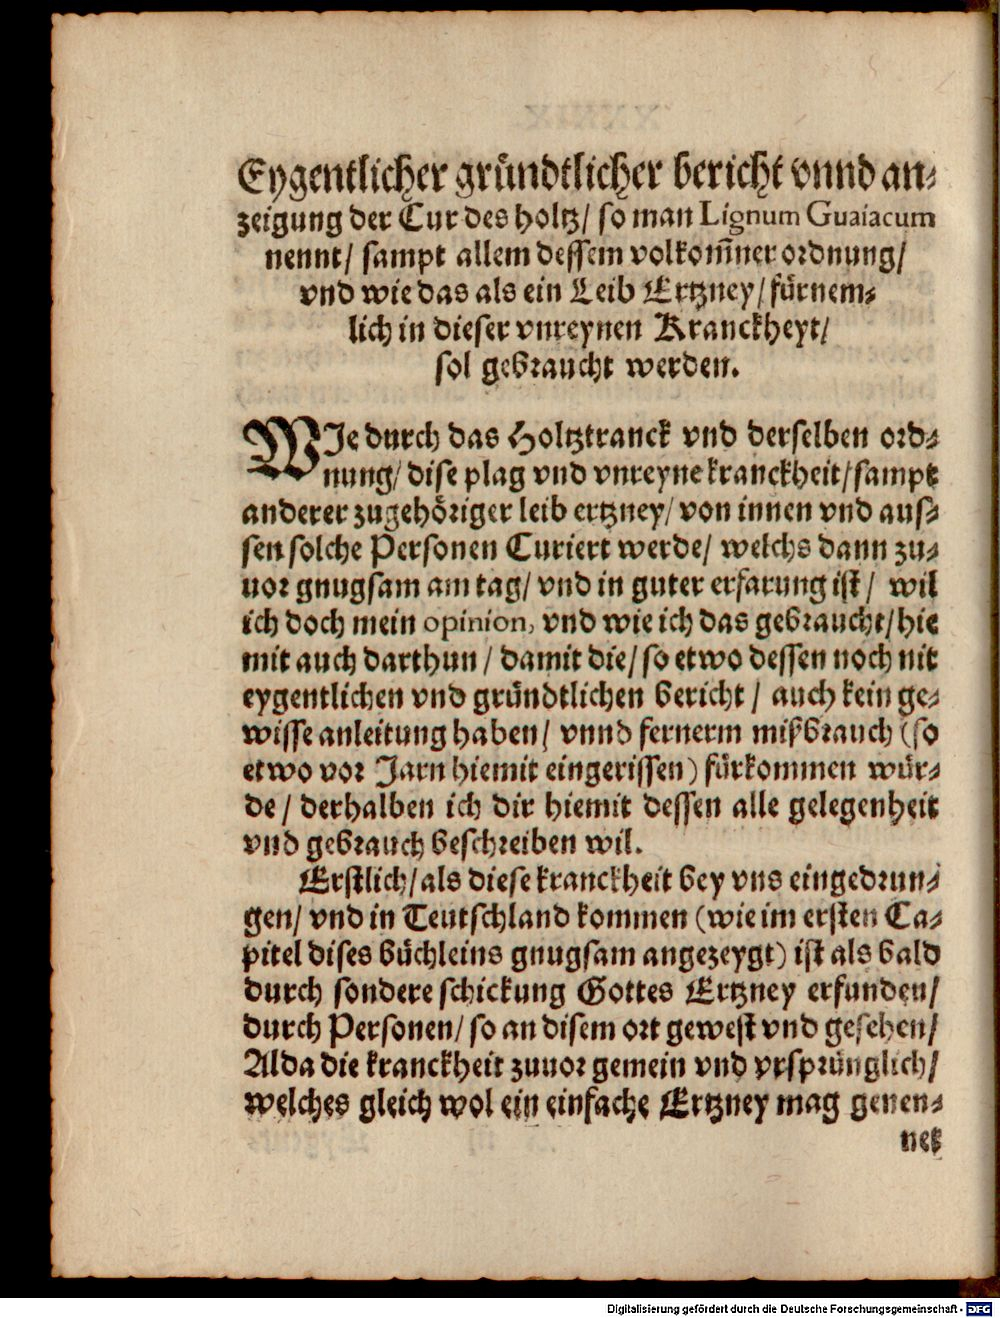 Eygentlicher gründtlicher bericht vnnd an⸗
zeigung der Cur des holtz/ so man Lignum Guaiacum
nennt/ sampt allem dessem volkom̃ner ordnung/
vnd wie das als ein Leib Ertzney/ fürnem⸗
lich in dieser vnreynen Kranckheyt/
sol gebraucht werden.
WJe durch das Holtztranck vnd derselben ord⸗
nung/ dise plag vnd vnreyne kranckheit/ sampt
anderer zugehöriger leib ertzney/ von innen vnd aus⸗
sen solche Personen Curiert werde/ welchs dann zu⸗
uor gnugsam am tag/ vnd in guter erfarung ist/ wil
ich doch mein opinion, vnd wie ich das gebraucht/ hie
mit auch darthun/ damit die/ so etwo dessen noch nit
eygentlichen vnd gründtlichen bericht/ auch kein ge⸗
wisse anleitung haben/ vnnd fernerm mißbrauch (so
etwo vor Jarn hiemit eingerissen) fürkommen wür⸗
de/ derhalben ich dir hiemit dessen alle gelegenheit
vnd gebrauch beschreiben wil.
Erstlich/ als diese kranckheit bey vns eingedrun⸗
gen/ vnd in Teutschland kommen (wie im ersten Ca⸗
pitel dises büchleins gnugsam angezeygt) ist als bald
durch sondere schickung Gottes Ertzney erfunden/
durch Personen/ so an disem ort gewest vnd gesehen/
Alda die kranckheit zuuor gemein vnd vrsprünglich/
welches gleich wol ein einfache Ertzney mag genen⸗
net
Digitalisierung gefördert durch die Deutsche Forschungsgemeinschaft - DFG